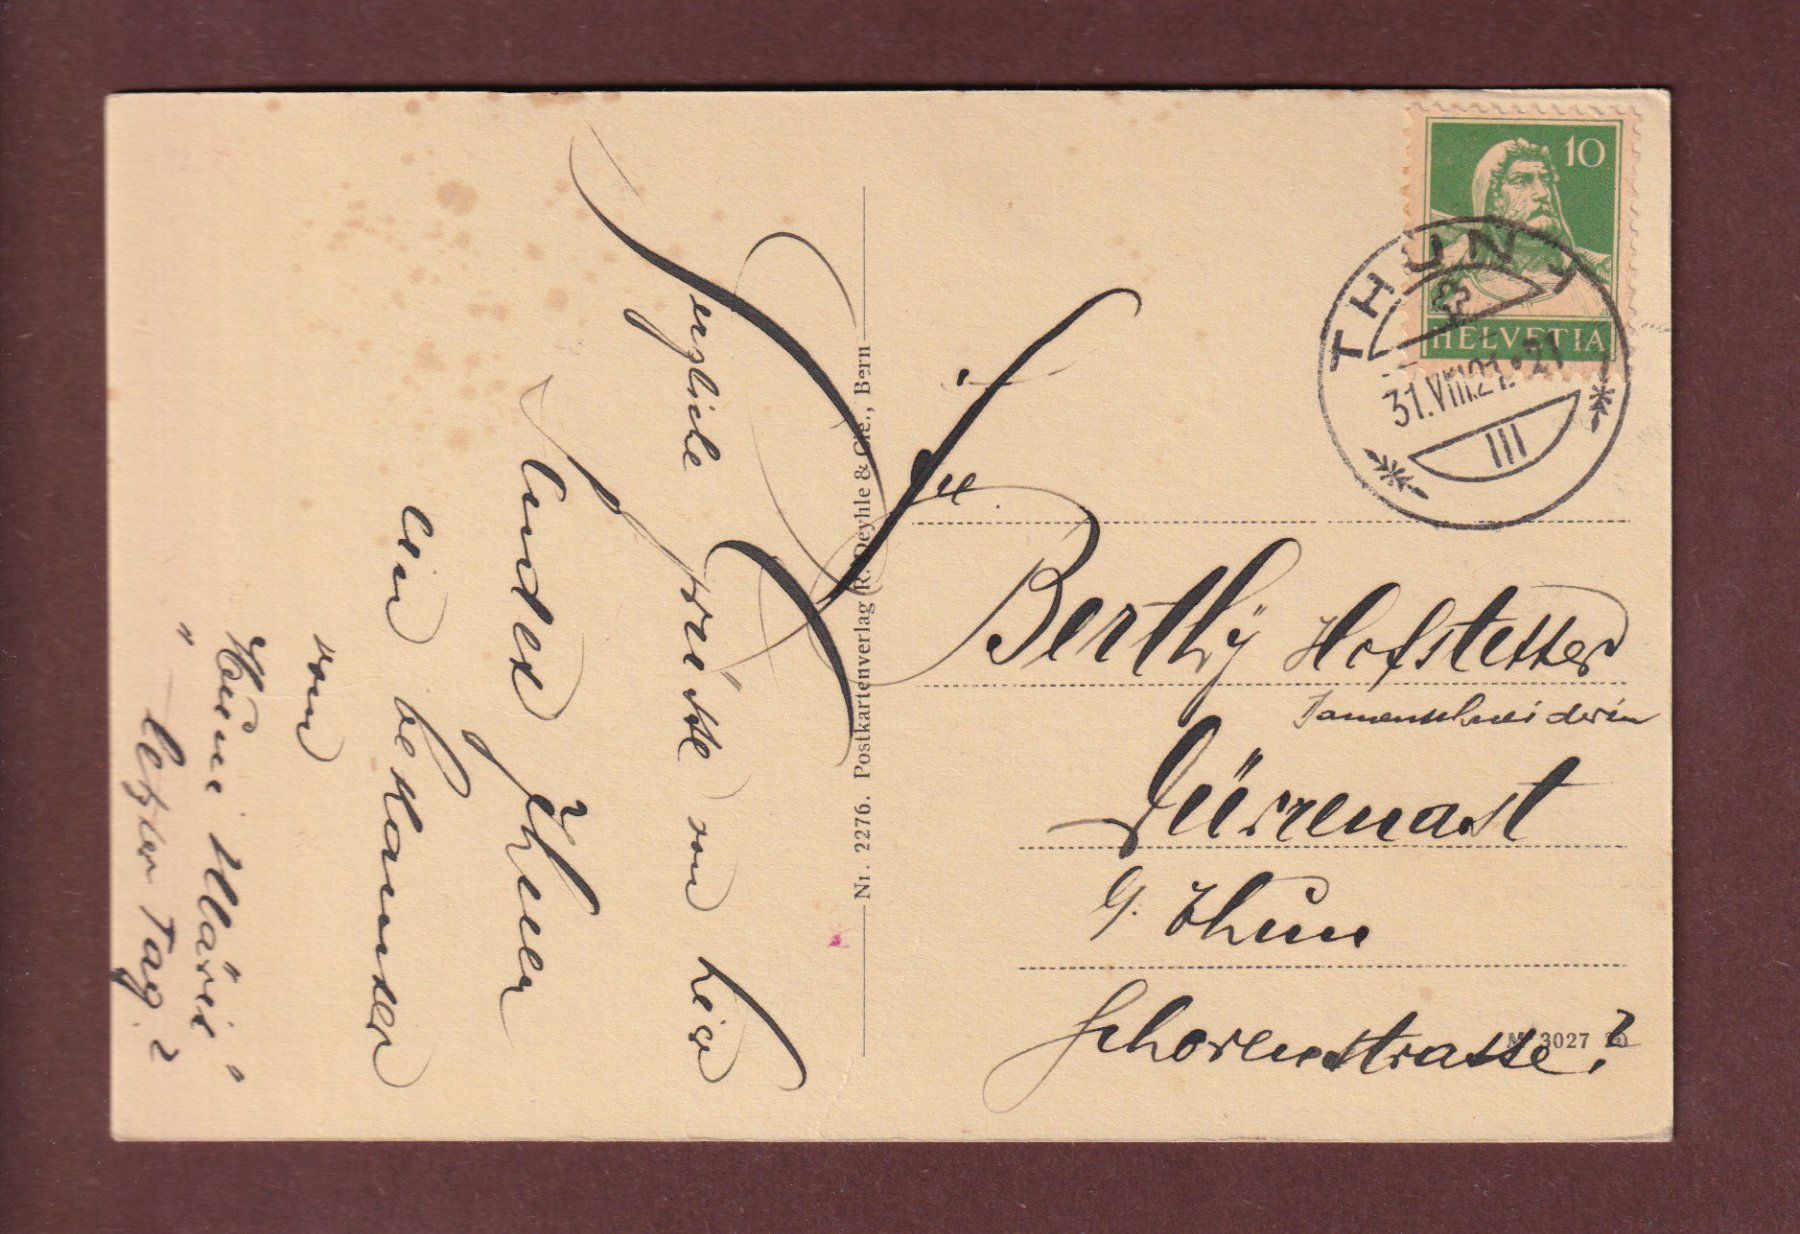 Herzliche Grüsse von hier
sendet Ihnen
ein bekannter
vom
"
letzter Tag?
Nr. 2276. Postkartenverlag R. Deyhle & Cie., Bern
10
HELVETIA
THUN 1
31.VIII.21.-21
III
Berthy Hofstetter
Damenschneiderin
Dürrenast
b. Thun
Schorenstrasse?
3027